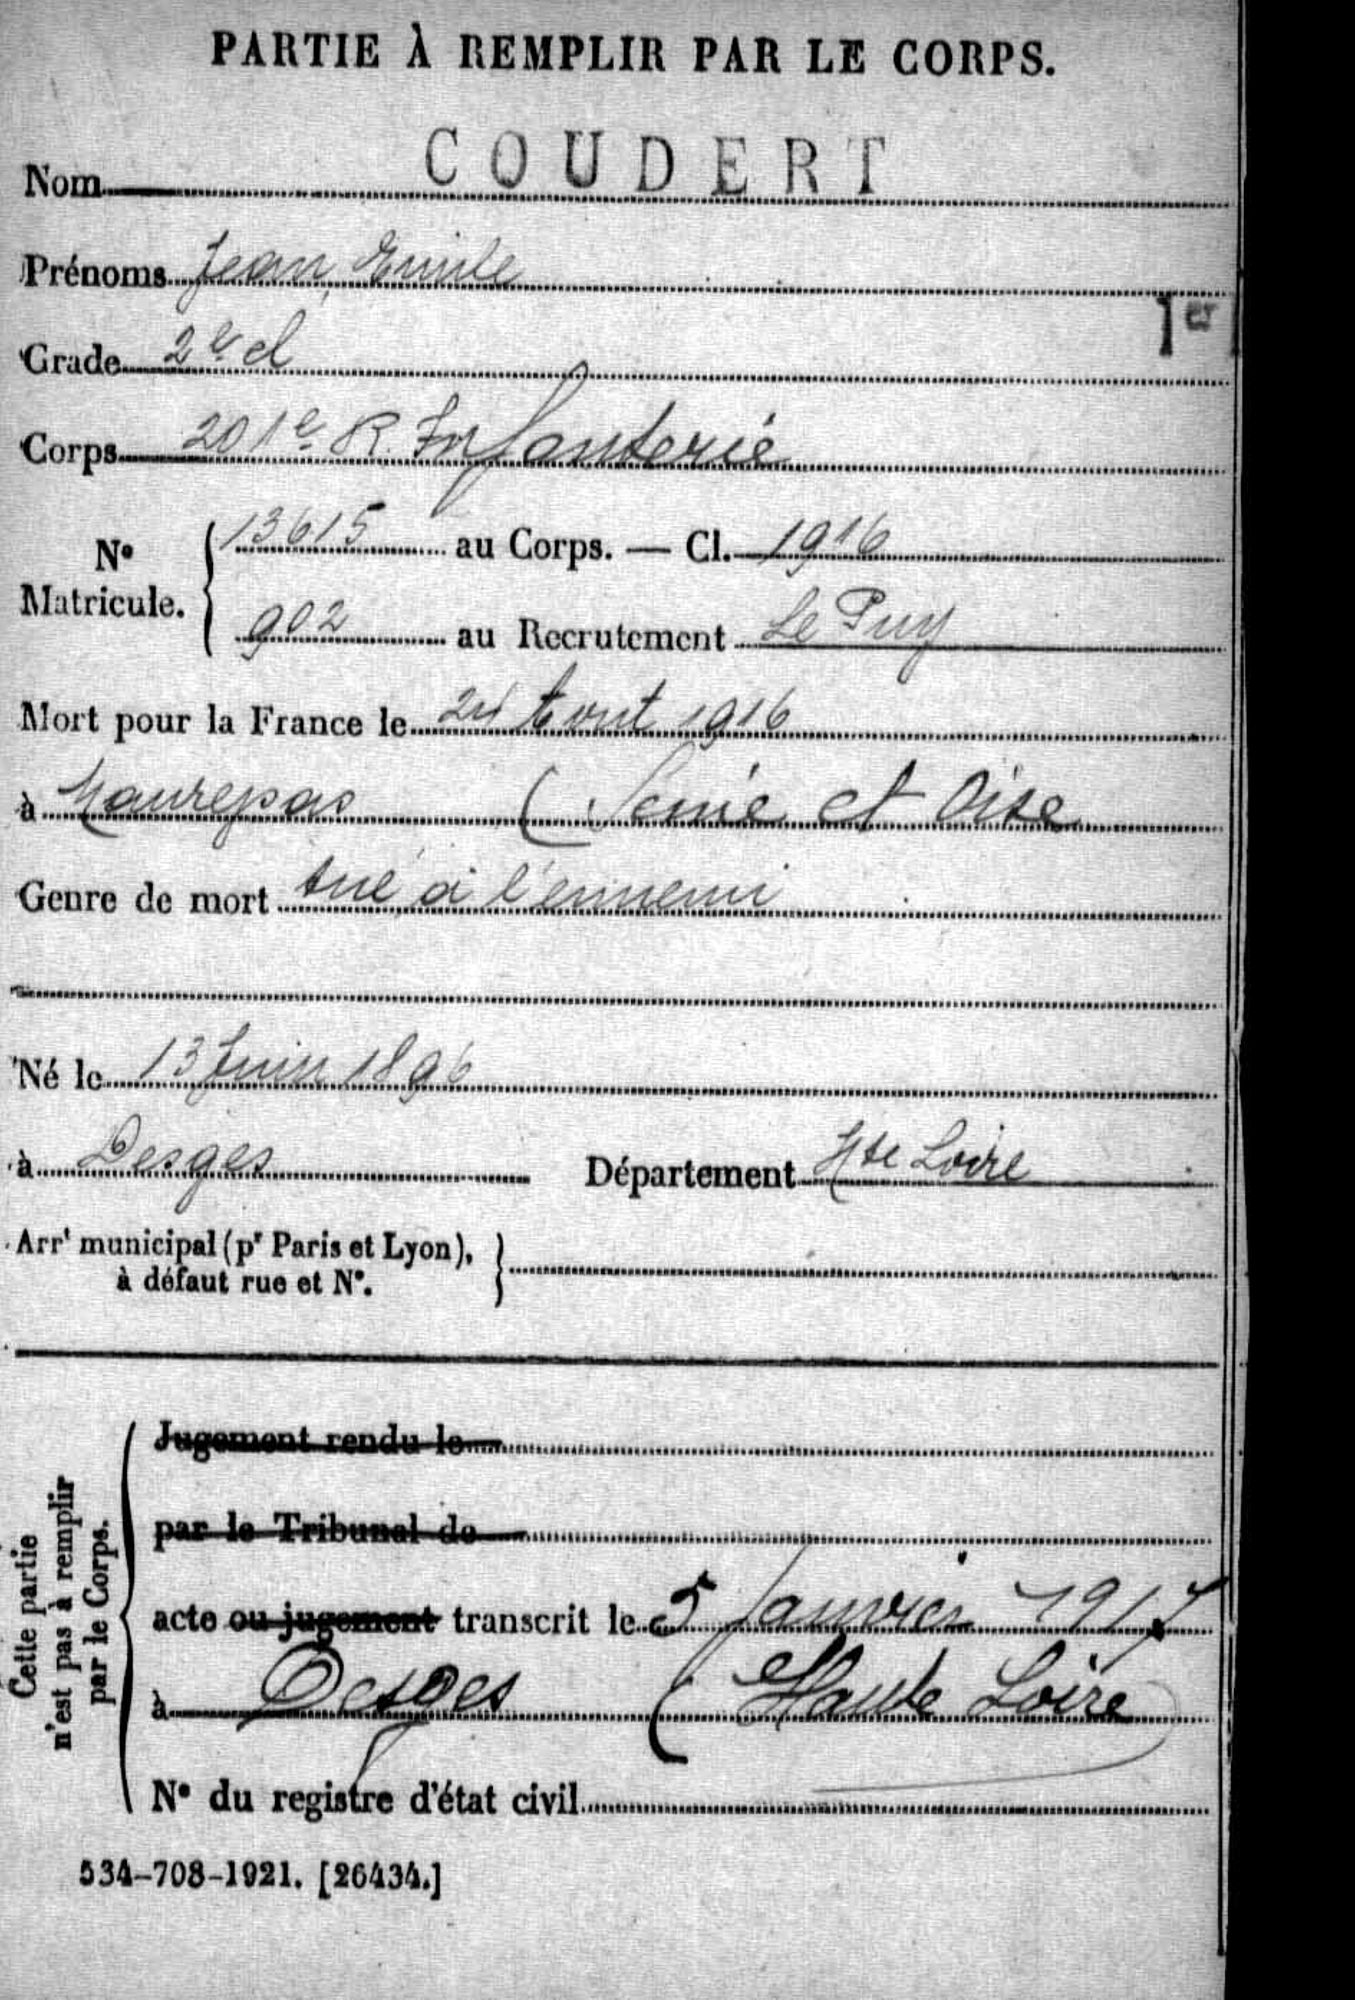 PARTIE À REMPLIR PAR LE CORPS.
Nom COUDERT
Prénoms Jean, Emile
1er
Grade 2e cl
Corps 201e R. Infanterie
No Matricule. { 13615 au Corps. — Cl. 1916
902 au Recrutement Le Puy
Mort pour la France le 24 Aout 1916
à Maurepas (Seine et Oise
Genre de mort tué à l'ennemi
Né le 13 Juin 1896
à Desges Département Hte Loire
Arrt municipal (pr Paris et Lyon), }
à défaut rue et No.
Cette partie
n'est pas à remplir
par le Corps.
Jugement rendu le
par le Tribunal de
acte ou jugement transcrit le 5 Janvier 1917
à Desges (Haute Loire
No du registre d'état civil
534-708-1921. [26434.]